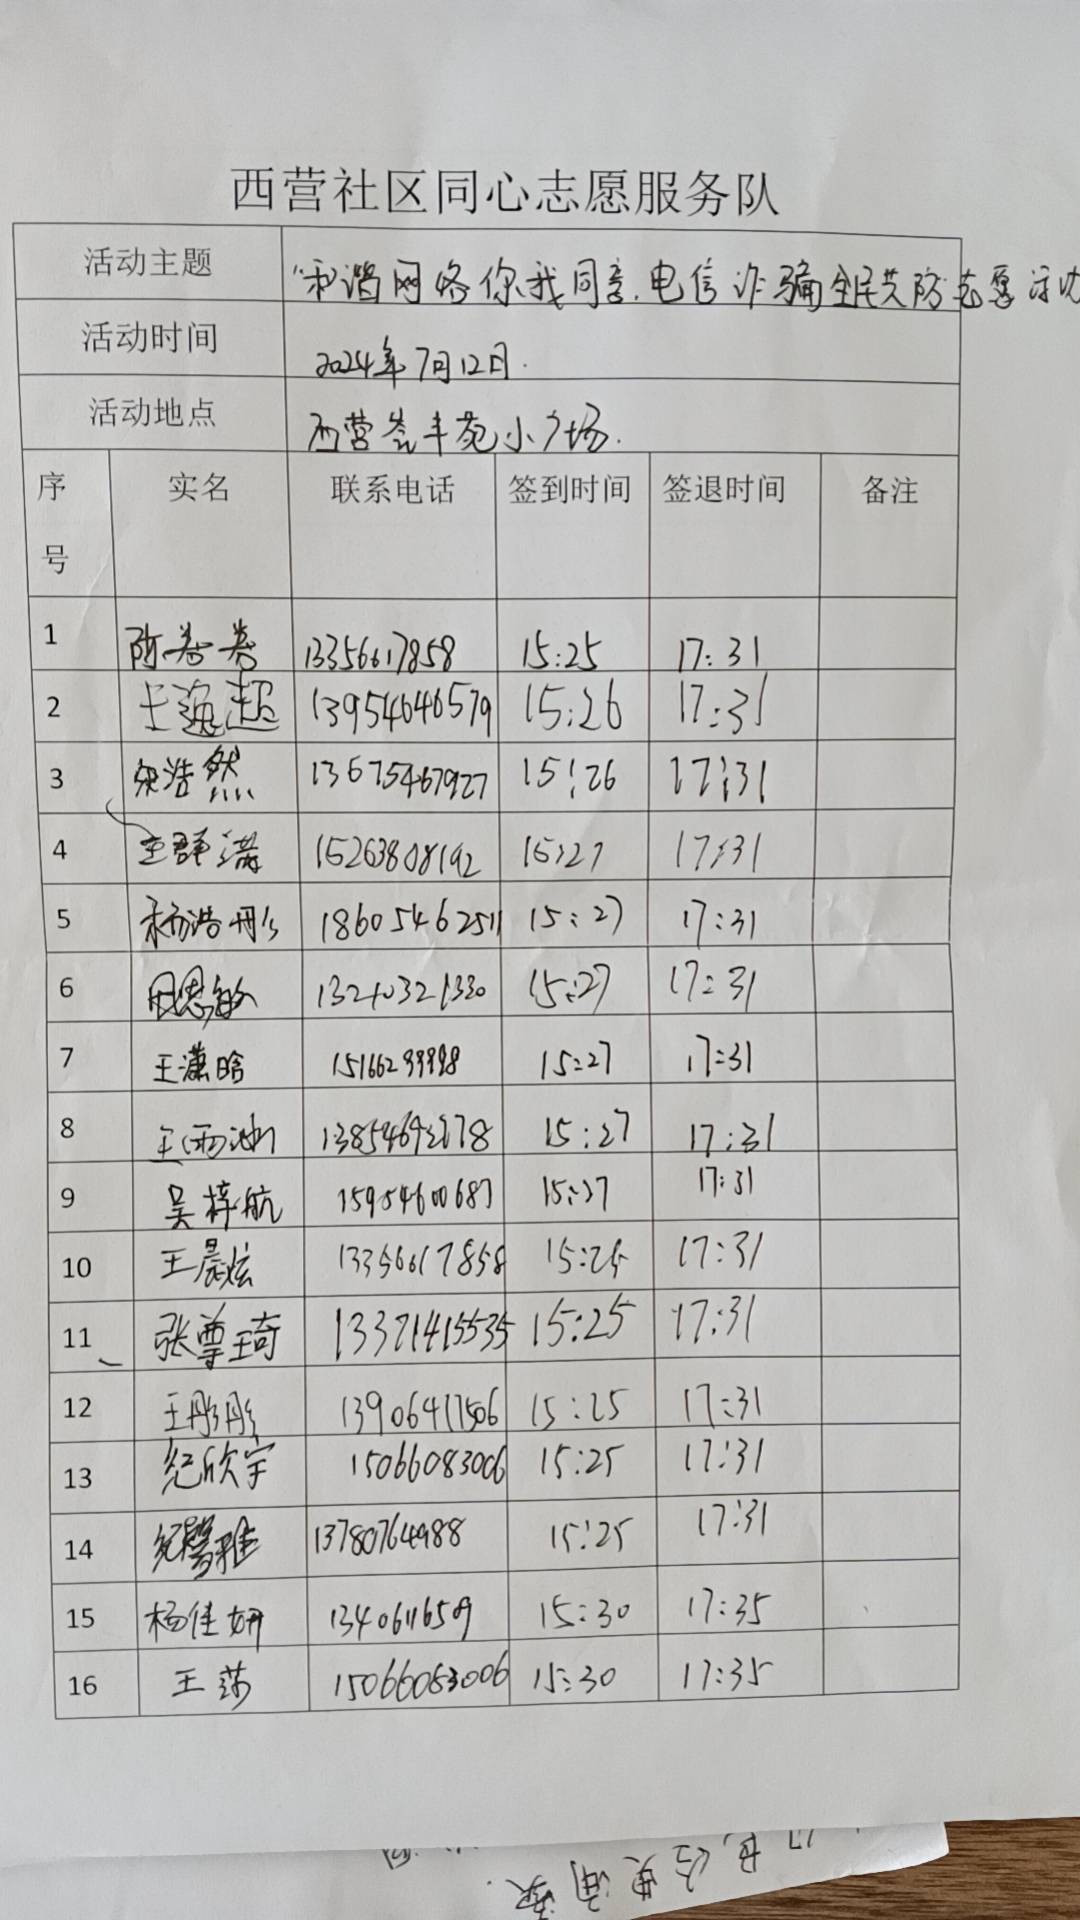 西营社区同心志愿服务队
活动主题 "和谐网络你我同享.电信诈骗全民共防志愿活动
活动时间 2024年7月12日.
活动地点 西营 丰苑小广场.
序号 实名 联系电话 签到时间 签退时间 备注
1 13356617858 15:25 17:31
2 王逸超 13954646579 15:26 17:31
3 宋浩然 13675467927 15:26 17:31
4 王群满 15263808192 15:27 17:31
5 杨浩 18605462511 15:27 17:31
6 田恩敏 15:27 17:31
7 王潇晗 15:27 17:31
8 15:27 17:31
9 吴梓航 15954600687 15:27 17:31
10 王晨炫 13356617858 15:25 17:31
11 张尊琦 13371415535 15:25 17:31
12 王彤彤 13906417506 15:25 17:31
13 纪欣宇 15066083006 15:25 17:31
14 纪馨雅 13780764988 15:25 17:31
15 杨佳妍 13406116509 15:30 17:35
16 王莎 15066083006 15:30 17:35